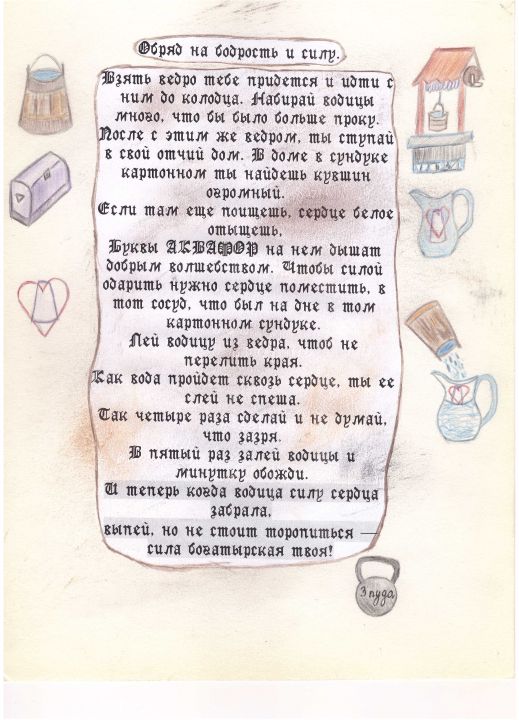 Обряд на бодрость и силу.
Взять ведро тебе придется и идти с
ним до колодца. Набирай водицы
много, что бы было больше проку.
После с этим же ведром, ты ступай
в свой отчий дом. В доме в сундуке
картонном ты найдешь кувшин
огромный.
Если там еще поищешь, сердце белое
отыщешь,
Буквы АКВАФОР на нем дышат
добрым волшебством. Чтобы силой
одарить нужно сердце поместить, в
тот сосуд, что был на дне в том
картонном сундуке.
Лей водицу из ведра, чтоб не
перелить края.
Как вода пройдет сквозь сердце, ты ее
слей не спеша.
Так четыре раза сделай и не думай,
что зазря.
В пятый раз залей водицы и
минутку обожди.
И теперь когда водица силу сердца
забрала,
выпей, но не стоит торопиться —
сила богатырская твоя!
3 пуда